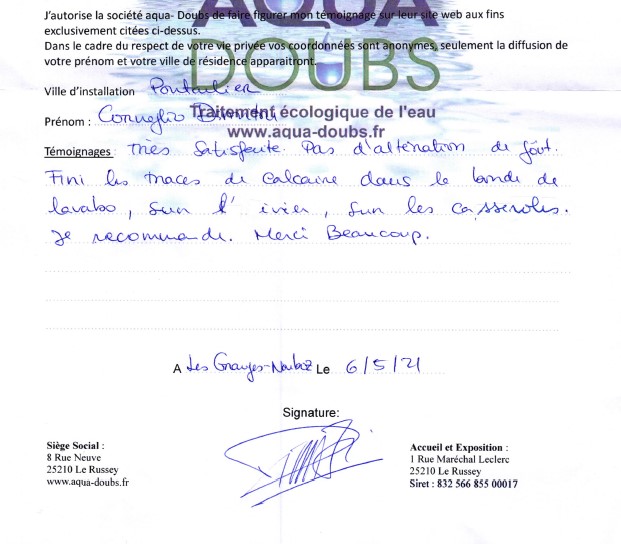 J'autorise la société aqua- Doubs de faire figurer mon témoignage sur leur site web aux fins
exclusivement citées ci-dessus.
AQUA
Dans le cadre du respect de votre vie privée vos coordonnées sont anonymes, seulement la diffusion de
votre prénom et votre ville de résidence apparaitront.
DOUBS
Ville d'installation Pontarlier
Traitement écologique de l'eau
Prénom :
www.aqua-doubs.fr
Témoignages très Satisfaite. Pas d'altération de goût.
Fini les traces de calcaire dans le bonde de
lavabo, sur l'évier, sur les casseroles.
Je recommande. Merci Beaucoup.
A Les Granges-Narboz Le 6/5/21
Signature:
Siège Social :
8 Rue Neuve
25210 Le Russey
www.aqua-doubs.fr
Accueil et Exposition :
1 Rue Maréchal Leclerc
25210 Le Russey
Siret : 832 566 855 00017